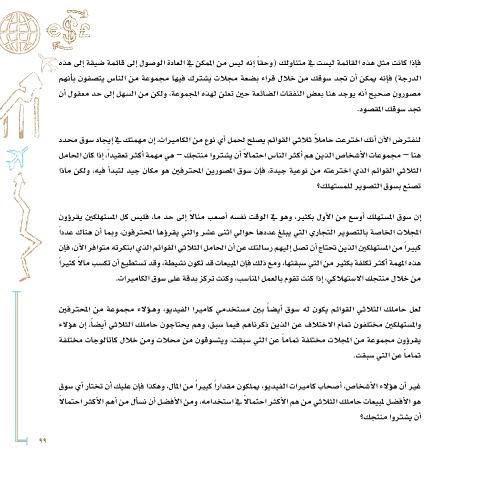 فإذا كانت مثل هذه القائمة ليست في متناولك (وحقاً إنه ليس من الممكن في العادة الوصول إلى قائمة ضيقة إلى هذه
الدرجة) فإنه يمكن أن تجد سوقك من خلال قراء بضعة مجلات يشترك فيها مجموعة من الناس يتصفون بأنهم
مصورون صحيح أنه يوجد هنا بعض النفقات الضائعة حين تعلن لهذه المجموعة، ولكن من السهل إلى حد معقول أن
تجد سوقك المقصود.
لنفترض الآن أنك اخترعت حاملاً ثلاثي القوائم يصلح لحمل أي نوع من الكاميرات، إن مهمتك في إيجاد سوق محدده
هنا – مجموعات الأشخاص الذين هم أكثر الناس احتمالاً أن يشتروا منتجك – هي مهمة أكثر تعقيداً، إذا كان الحامل
الثلاثي القوائم الذي اخترعته من نوعية جيدة، فإن سوق المصورين المحترفين هو مكان جيد لتبدأ فيه، ولكن ماذا
تصنع بسوق التصوير للمستهلك؟
إن سوق المستهلك أوسع من الأول بكثير، وهو في الوقت نفسه أصعب منالاً إلى حد ما، فليس كل المستهلكين يقرؤون
المجلات الخاصة بالتصوير التجاري التي يبلغ عددها حوالي اثنى عشر والتي يقرؤها المحترفون، وبما أن هناك عدداً
كبيراً من المستهلكين الذين تحتاج أن تصل إليهم رسالتك عن أن الحامل الثلاثي القوائم الذي ابتكرته متوافر الآن، فإن
هذه المهمة أكثر تكلفة بكثير من التي سبقتها، ومع ذلك فإن المبيعات قد تكون نشيطة، وقد تستطيع أن تكسب مالاً كثيراً
من خلال منتجك الاستهلاكي، إذا كنت تقوم بالعمل المناسب، وكنت تركز بدقة على سوق الكاميرات.
لعل حاملك الثلاثي القوائم يكون له سوق أيضاً بين مستخدمي كاميرا الفيديو، وهؤلاء مجموعة من المحترفين
والمستهلكين مختلفون تمام الاختلاف عن الذين ذكرناهم فيما سبق، وهم يحتاجون حاملك الثلاثي أيضاً، إن هؤلاء
يقرؤون مجموعة من المجلات مختلفة تماماً عن التي سبقت، ويتسوقون من محلات ومن خلال كاتالوجات مختلفة
تماماً عن التي سبقت.
غير أن هؤلاء الأشخاص، أصحاب كاميرات الفيديو، يملكون مقداراً كبيراً من المال، وهكذا فإن عليك أن تختار أي سوق
هو الأفضل لمبيعات حاملك الثلاثي من هم الأكثر احتمالاً في استخدامه، ومن الأفضل أن نسأل من أهم الأكثر احتمالاً
أن يشتروا منتجك؟
٩٩